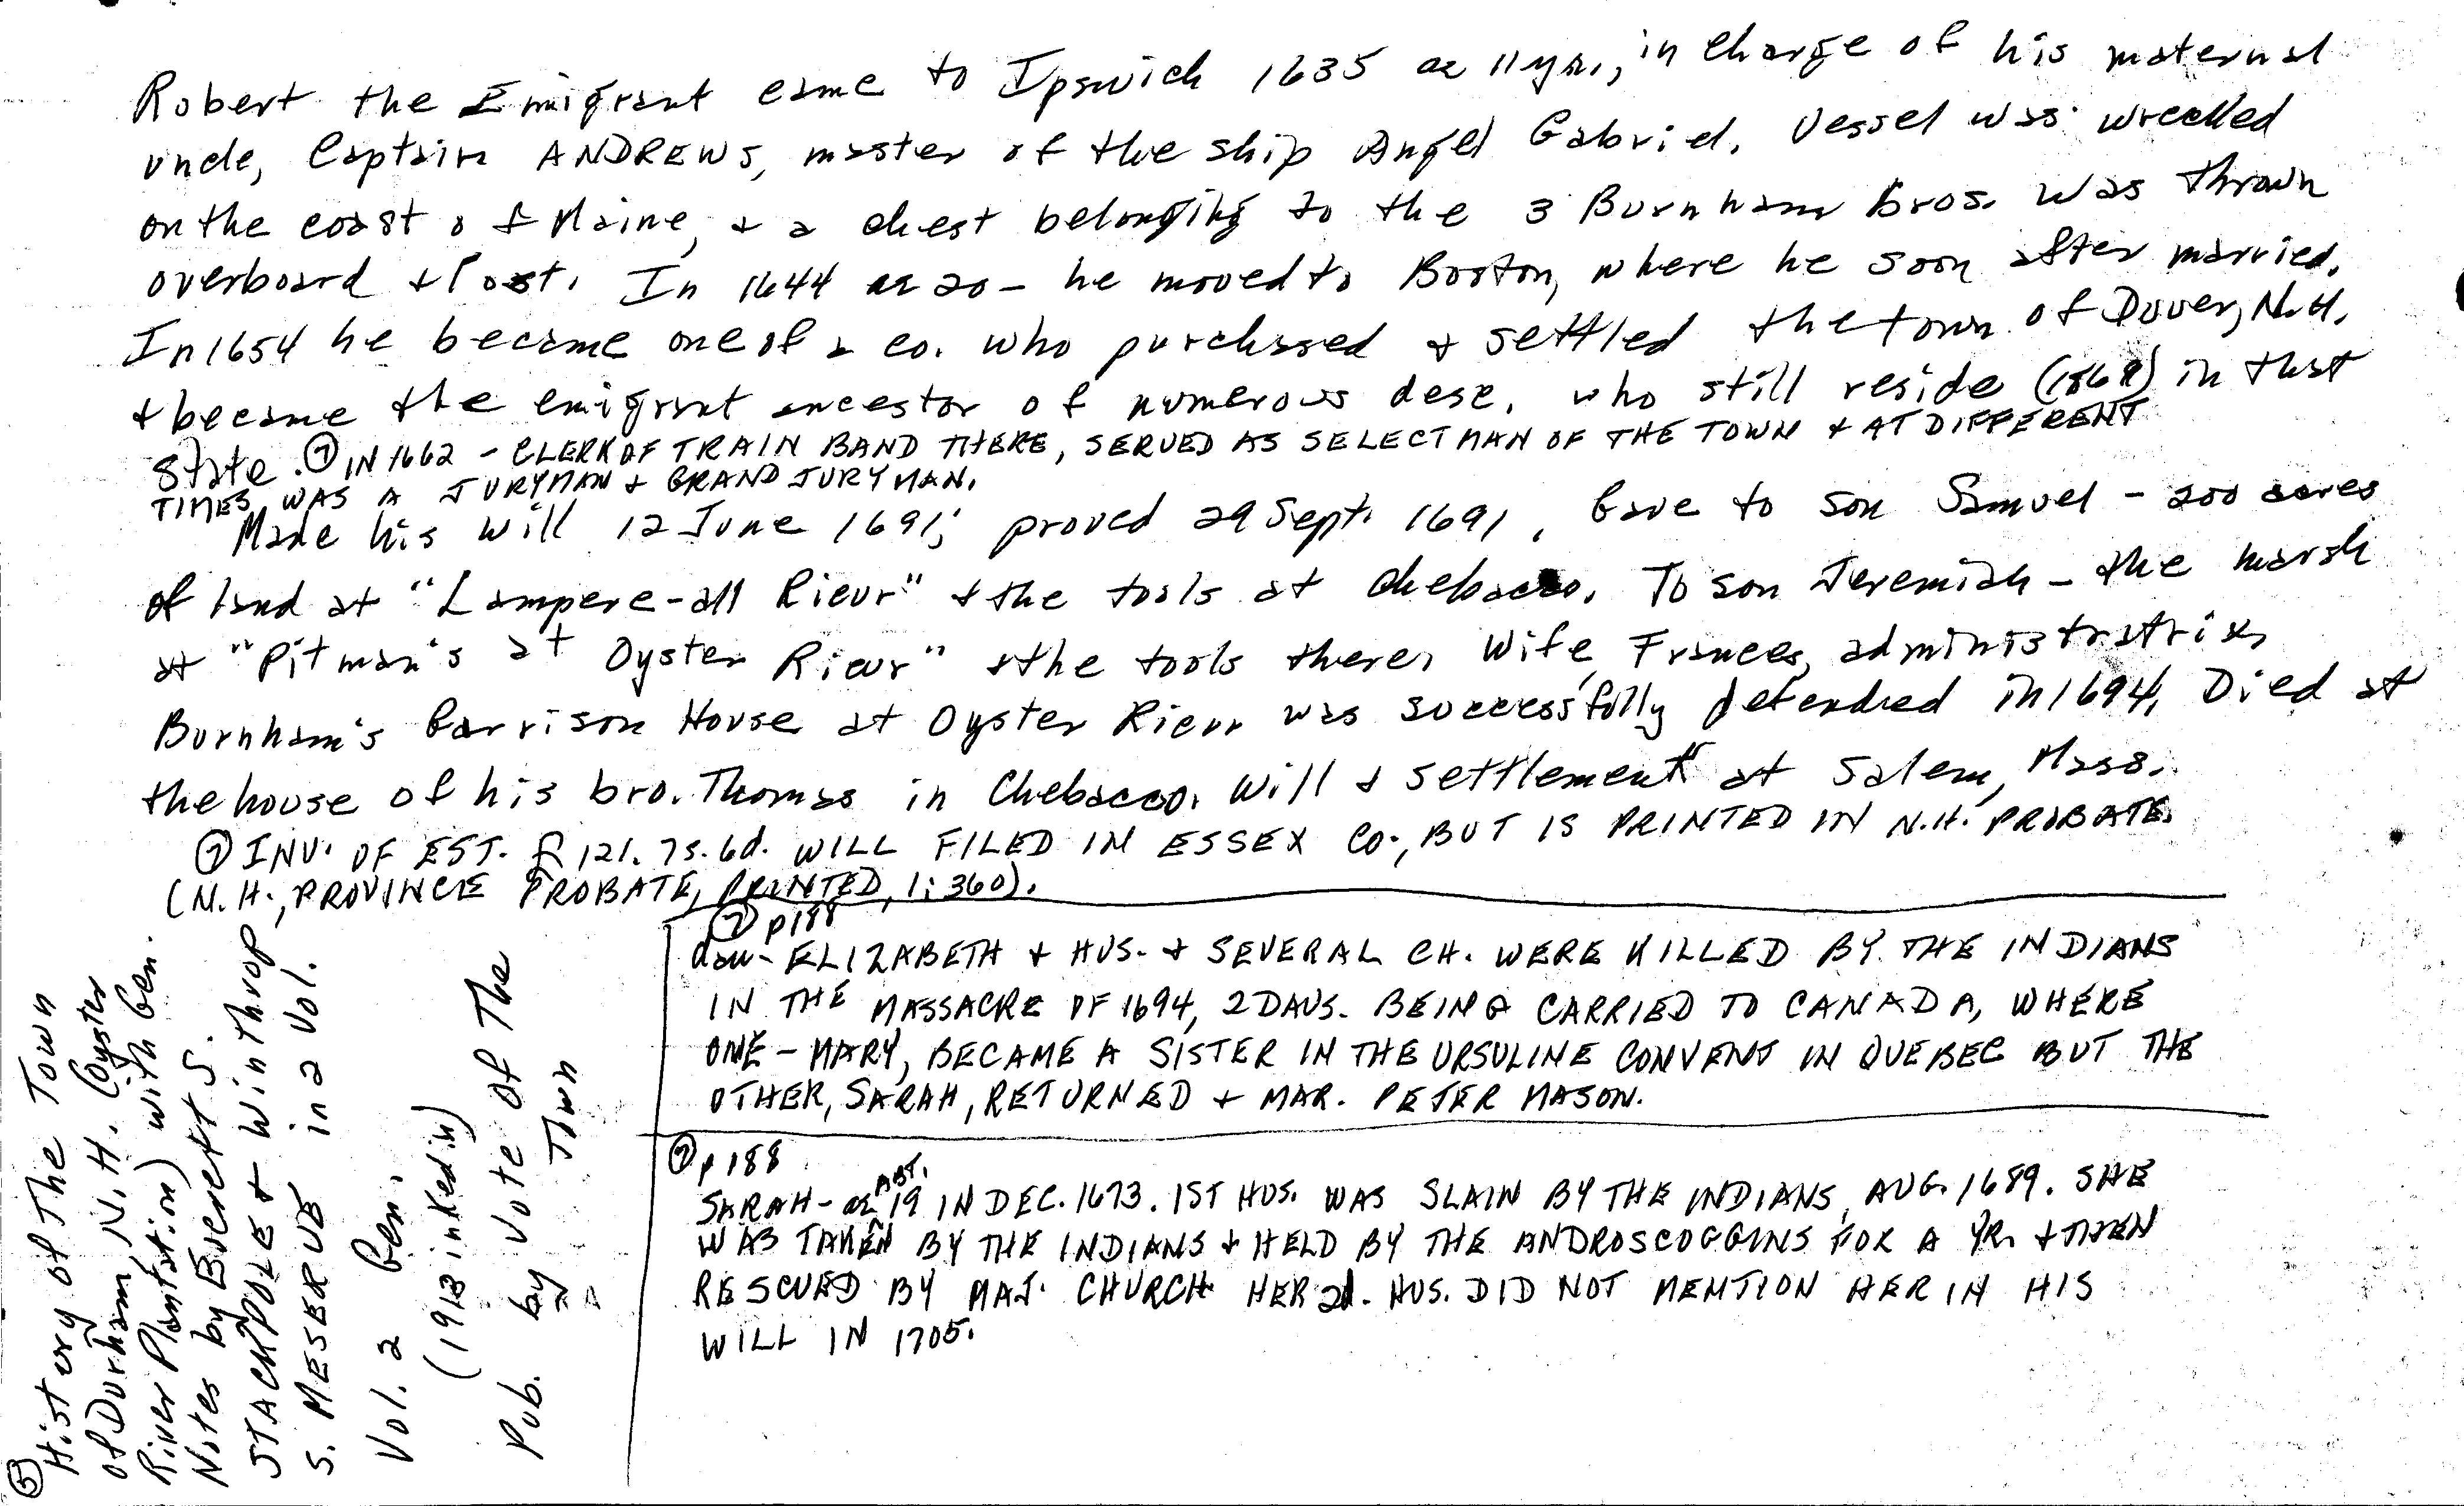 Robert the Emigrant came to Ipswich 1635 ae 11 yrs., in charge of his maternal
uncle, Captain ANDREWS, master of the ship Angel Gabriel. Vessel was wrecked
on the coast of Maine, & a chest belonging to the 3 Burnham Bros. was thrown
overboard & lost. In 1644 ae 20 - he moved to Boston, where he soon after married.
In 1654 he became one of a co. who purchased & settled the town of Dover, N.H.
& became the emigrant ancestor of numerous desc. who still reside (1869) in that
State. ⑦ IN 1662 - CLERK OF TRAIN BAND THERE, SERVED AS SELECTMAN OF THE TOWN & AT DIFFERENT
TIMES WAS A JURYMAN & GRAND JURYMAN.
Made his will 12 June 1691; proved 29 Sept. 1691. Gave to son Samuel - 200 acres
of land at "Lampere-all Rieur" & the tools at Chebacco. To son Jeremiah - the marsh
at "Pitman's at Oyster Rieur" & the tools there. Wife, Frances, administratrix.
Burnham's Garrison House at Oyster Rieur was successfully defended in 1694. Died at
the house of his bro. Thomas in Chebacco. Will & settlement at Salem, Mass.
⑦ INV. OF EST. £ 121. 7s. 6d. WILL FILED IN ESSEX CO., BUT IS PRINTED IN N.H. PROBATE.
(N.H., PROVINCE PROBATE, PRINTED, 1:360).
⑦ p 188
dau - ELIZABETH & HUS. & SEVERAL CH. WERE KILLED BY THE INDIANS
IN THE MASSACRE OF 1694, 2 DAUS. BEING CARRIED TO CANADA, WHERE
ONE - MARY, BECAME A SISTER IN THE URSULINE CONVENT IN QUEBEC BUT THE
OTHER, SARAH, RETURNED & MAR. PETER MASON.
⑦ p 188
ABT.
SARAH - ae 19 IN DEC. 1673. 1ST HUS. WAS SLAIN BY THE INDIANS, AUG. 1689. SHE
WAS TAKEN BY THE INDIANS & HELD BY THE ANDROSCOGGINS FOR A YR. & THEN
RESCUED BY MAJ. CHURCH. HER 2d. HUS. DID NOT MENTION HER IN HIS
WILL IN 1705.
⑤ History of The Town
of Durham, N.H. (Oyster
River Plantation) with Gen.
Notes by Everett S.
STACKPOLE & Winthrop
S. MESERVE in 2 Vol.
Vol. 2 Gen.
(1913 inked in)
Pub. by Vote of The
Town